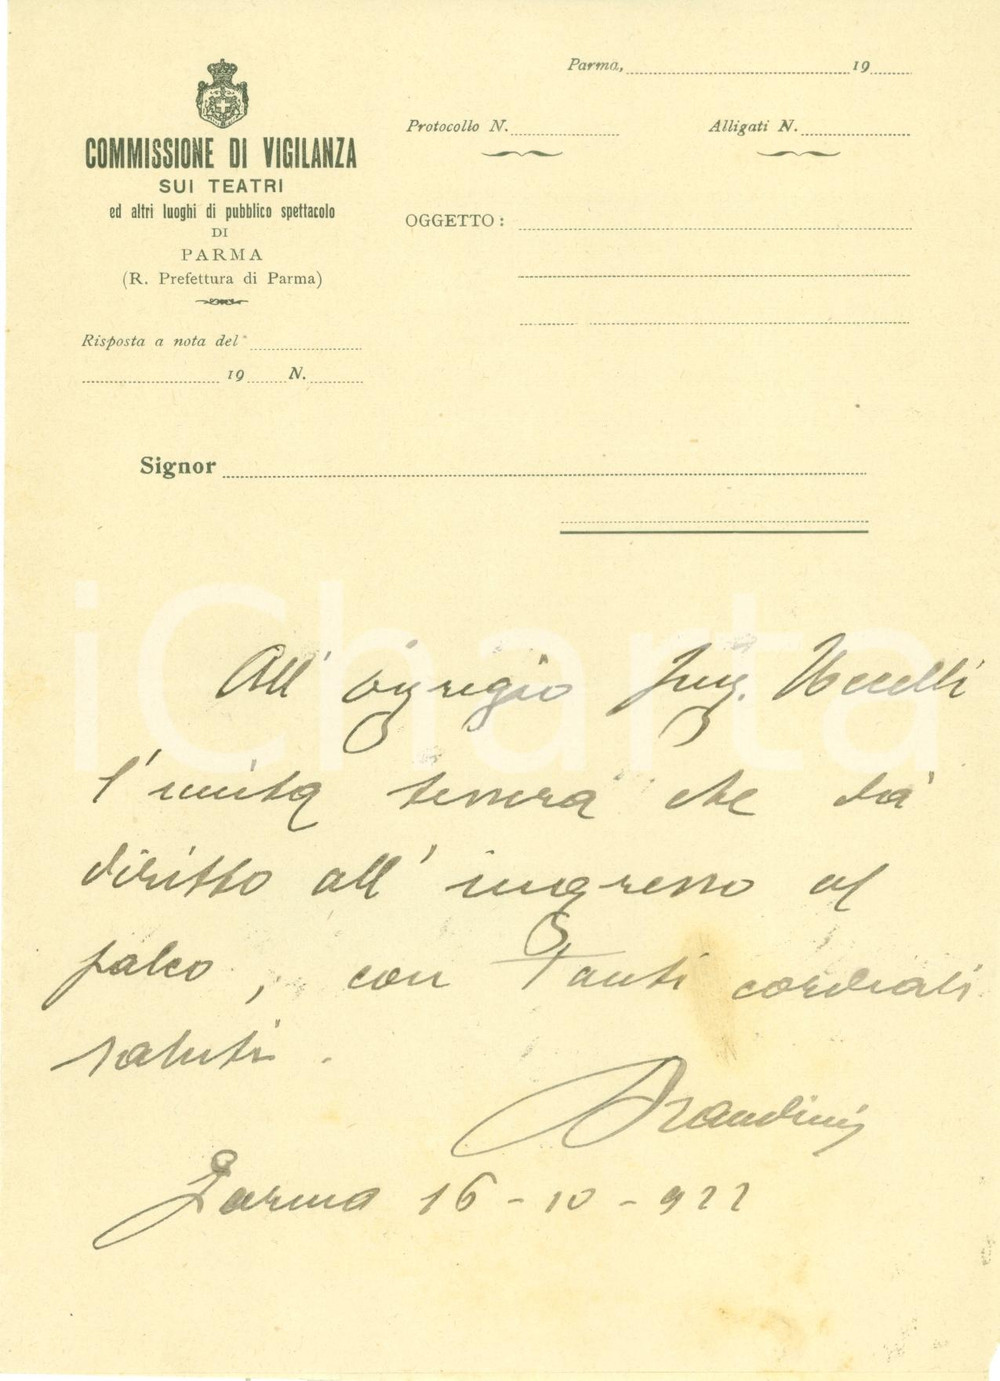 Parma, 19
COMMISSIONE DI VIGILANZA
SUI TEATRI
ed altri luoghi di pubblico spettacolo
DI
PARMA
(R. Prefettura di Parma)
Protocollo N. Alligati N.
OGGETTO:
Risposta a nota del
19 N.
Signor
iCharta
All' egregio Ing. Uccelli
l'unita tessera che dà
diritto all' ingresso al
palco, con tanti cordiali
saluti.
Parma 16-10-922